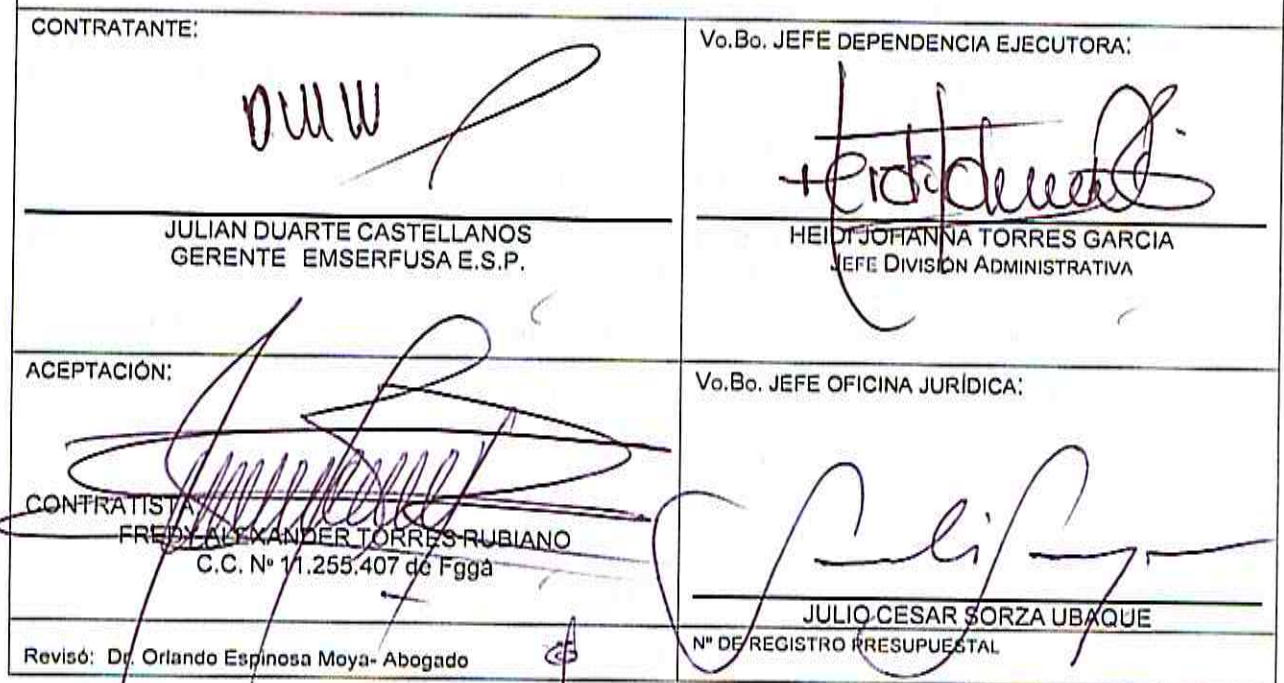 CONTRATANTE:
JULIAN DUARTE CASTELLANOS
GERENTE EMSERFUSA E.S.P.
Vo.Bo. JEFE DEPENDENCIA EJECUTORA:
HEIDI JOHANNA TORRES GARCIA
JEFE DIVISIÓN ADMINISTRATIVA
ACEPTACIÓN:
CONTRATISTA
FREDY ALEXANDER TORRES RUBIANO
C.C. Nº 11.255.407 de Fggá
Vo.Bo. JEFE OFICINA JURÍDICA:
JULIO CESAR SORZA UBAQUE
Revisó: Dr. Orlando Espinosa Moya- Abogado
Nº DE REGISTRO PRESUPUESTAL